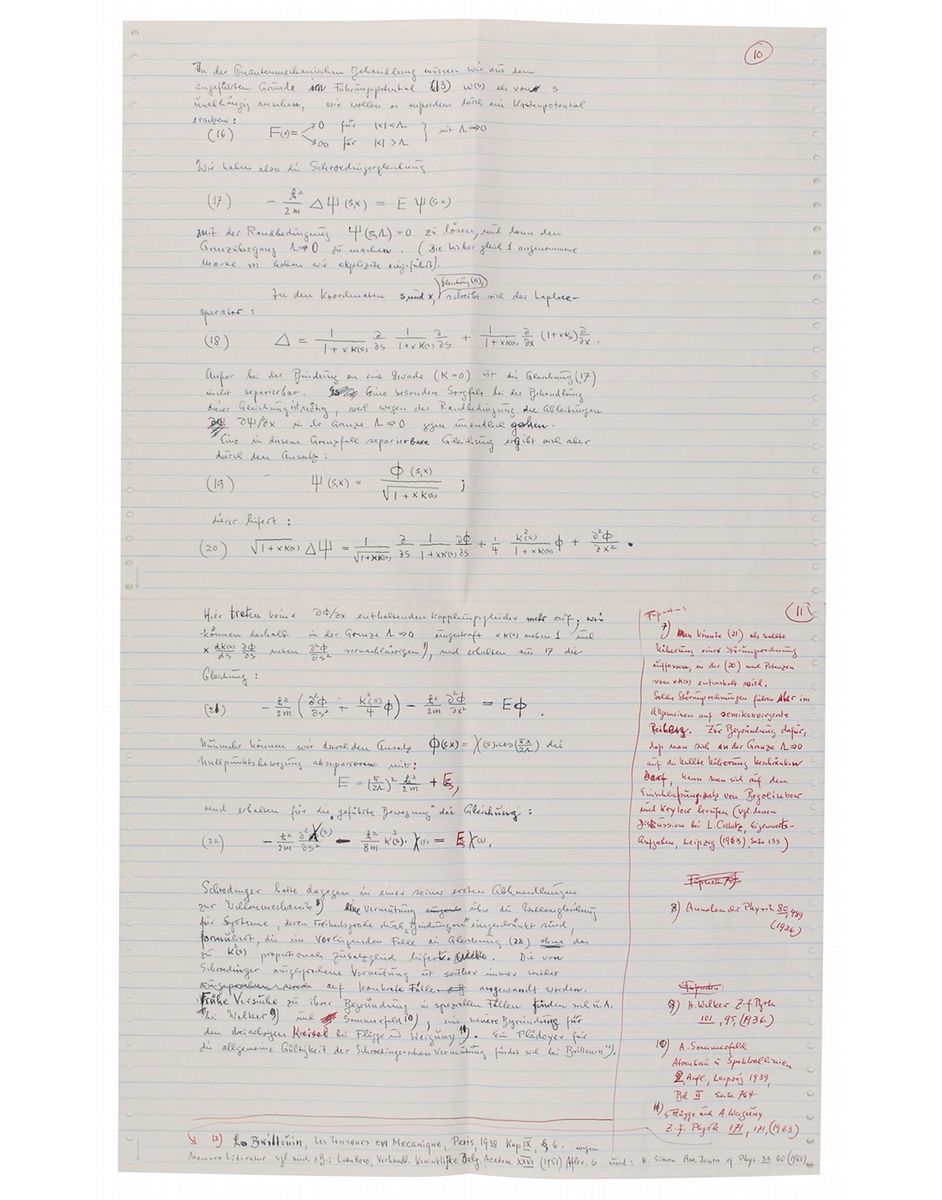 10
In der Quantenmechanischen Behandlung müssen wir aus dem
angeführten Grunde im Führungspotential (13) w(s) als von s
unabhängig ansehen, wir wollen es ausserdem durch ein Kastenpotential
ersetzen:
(16) F(x) = → 0 für |x| < Λ } mit Λ → 0
→ ∞ für |x| > Λ
Wir haben also die Schroedingergleichung
(17) − ħ²/2m Δ Ψ(s,x) = E Ψ(s,x)
mit der Randbedingung Ψ(s,Λ) = 0 zu lösen, und dann den
Grenzübergang Λ → 0 zu machen. (Die bisher gleich 1 angenommene
Masse m haben wir explizite eingeführt).
Gleichung (11)
In den Koordinaten s und x, schreibt sich der Laplace-
operator:
(18) Δ = 1/(1+xK(s)) ∂/∂s 1/(1+xK(s)) ∂/∂s + 1/(1+xK(s)) ∂/∂x (1+xK(s)) ∂/∂x .
Außer bei der Bindung an eine Gerade (K=0) ist die Gleichung (17)
nicht separierbar. Eine besondere Sorgfalt bei der Behandlung
dieser Gleichung ist nötig, weil wegen der Randbedingung die Ableitungen
∂Ψ/∂x in der Grenze Λ → 0 gegen unendlich gehen.
Eine in diesem Grenzfall separierbare Gleichung ergibt sich aber
durch den Ansatz:
(19) Ψ(s,x) = Φ(s,x)/√(1+xK(s)) ;
dieser liefert:
(20) √(1+xK(s)) ΔΨ = 1/√(1+xK(s)) ∂/∂s 1/(1+xK(s)) ∂Φ/∂s + 1/4 K²(s)/(1+xK(s)) Φ + ∂²Φ/∂x² .
11
Hier treten keine ∂Φ/∂x enthaltenden Kopplungsglieder mehr auf; wir
können deshalb in der Grenze Λ → 0 ungestraft xK(s) neben 1 und
x dK(s)/ds ∂Φ/∂s neben ∂²Φ/∂s² vernachlässigen 7), und erhalten aus 17 die
Gleichung:
(21) − ħ²/2m (∂²Φ/∂s² + K²(s)/4 Φ) − ħ²/2m ∂²Φ/∂x² = EΦ .
Nunmehr können wir durch den Ansatz Φ(s,x) = χ(s) cos(πx/2Λ) die
Nullpunktsbewegung abseparieren mit:
E = (π/2Λ)² ħ²/2m + Es,
und erhalten für die "geführte Bewegung" die Gleichung:
(22) − ħ²/2m ∂²χ(s)/∂s² − ħ²/8m K²(s)· χ(s) = Es χ(s).
Schrodinger hatte dagegen in einer seiner ersten Abhandlungen
zur Wellenmechanik 8) eine Vermutung über die Wellengleichung
für Systeme, deren Freiheitsgrade durch "Bindungen" eingeschränkt sind
formuliert, die im vorliegenden Falle die Gleichung (22) ohne das
zu K²(s) proportionale Zusatzglied liefert. Die von
Schroedinger ausgesprochene Vermutung ist seither immer wieder
auf konkrete Fälle angewandt worden.
Frühe Versuche zu ihrer Begründung in speziellen Fällen finden sich u.A.
bei Welker 9) und Sommerfeld 10), eine neuere Begründung für
den dreiachsigen Kreisel bei Flügge und Weiguny 11). Ein Plädoyer für
die allgemeine Gültigkeit der Schroedingerschen Vermutung findet sich bei Brillouin 12).
7) Man könnte (21) als nullte
Näherung einer Störungsrechnung
auffassen, in der (20) nach Potenzen
von xK(s) entwickelt wird.
Solche Störungsrechnungen führen aber im
Allgemeinen auf semikonvergente
Reihen. Zur Begründung dafür,
daß man sich in der Grenze Λ → 0
auf die nullte Näherung beschränken
darf, kann man sich auf den
Einschließungssatz von Bogoliubow
und Krylow berufen (vgl. dessen
Diskussion bei L. Collatz, Eigenwerts-
Aufgaben, Leipzig (1963) Seite 133)
8) Annalen der Physik 80, 489
(1926)
9) H. Welker Z. f. Phys.
101, 95, (1936)
10) A. Sommerfeld
Atombau u Spektrallinien
2. Aufl., Leipzig 1939,
Bd II Seite 764
11) S. Flügge und A Weiguny
Z. f. Physik 171, 171, (1963)
12) L. Brillouin, Les Tenseurs en Mecanique, Paris 1938 Kap IX, § 6.
neuere Literatur vgl. auch z.B.: Verhandl. Koninklijke Belg. Academ. XXVI (1951) 6 und: Am. Journ of Phys. 33 60 (1965)